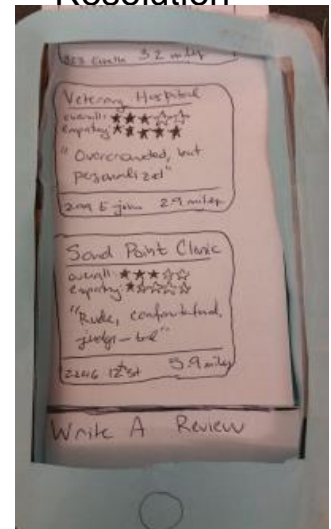 Resolution
3.2 miles
Veterans Hospital
overall: ★★★☆☆
empathy: ★★★★★
"Overcrowded, but
personalized"
299 E John 2.9 miles
Sand Point Clinic
overall: ★★★☆☆
empathy: ★☆☆☆☆
"Rude, confrontational,
"
12th St 3.9 miles
Write A Review